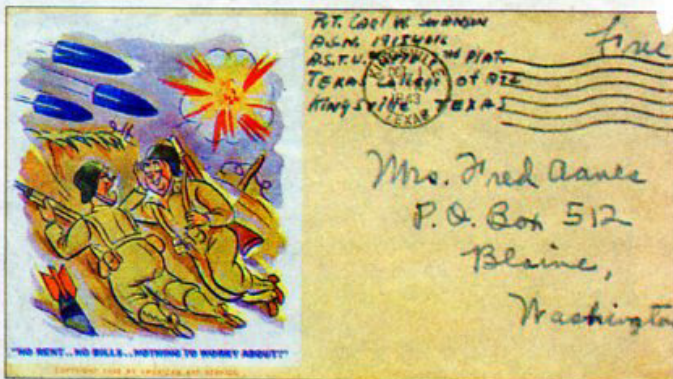 Pvt. Carl W. Swanson
A.S.N. 19154016
A.S.T.U. 2nd Plat.
Texas College of A & I
Kingsville Texas
Free
KINGSVILLE
1943
TEXAS
Mrs. Fred Aanes
P.O. Box 512
Blaine,
Washington
"NO RENT..NO BILLS..NOTHING TO WORRY ABOUT!"
COPYRIGHT BY AMERICAN ART SERVICE